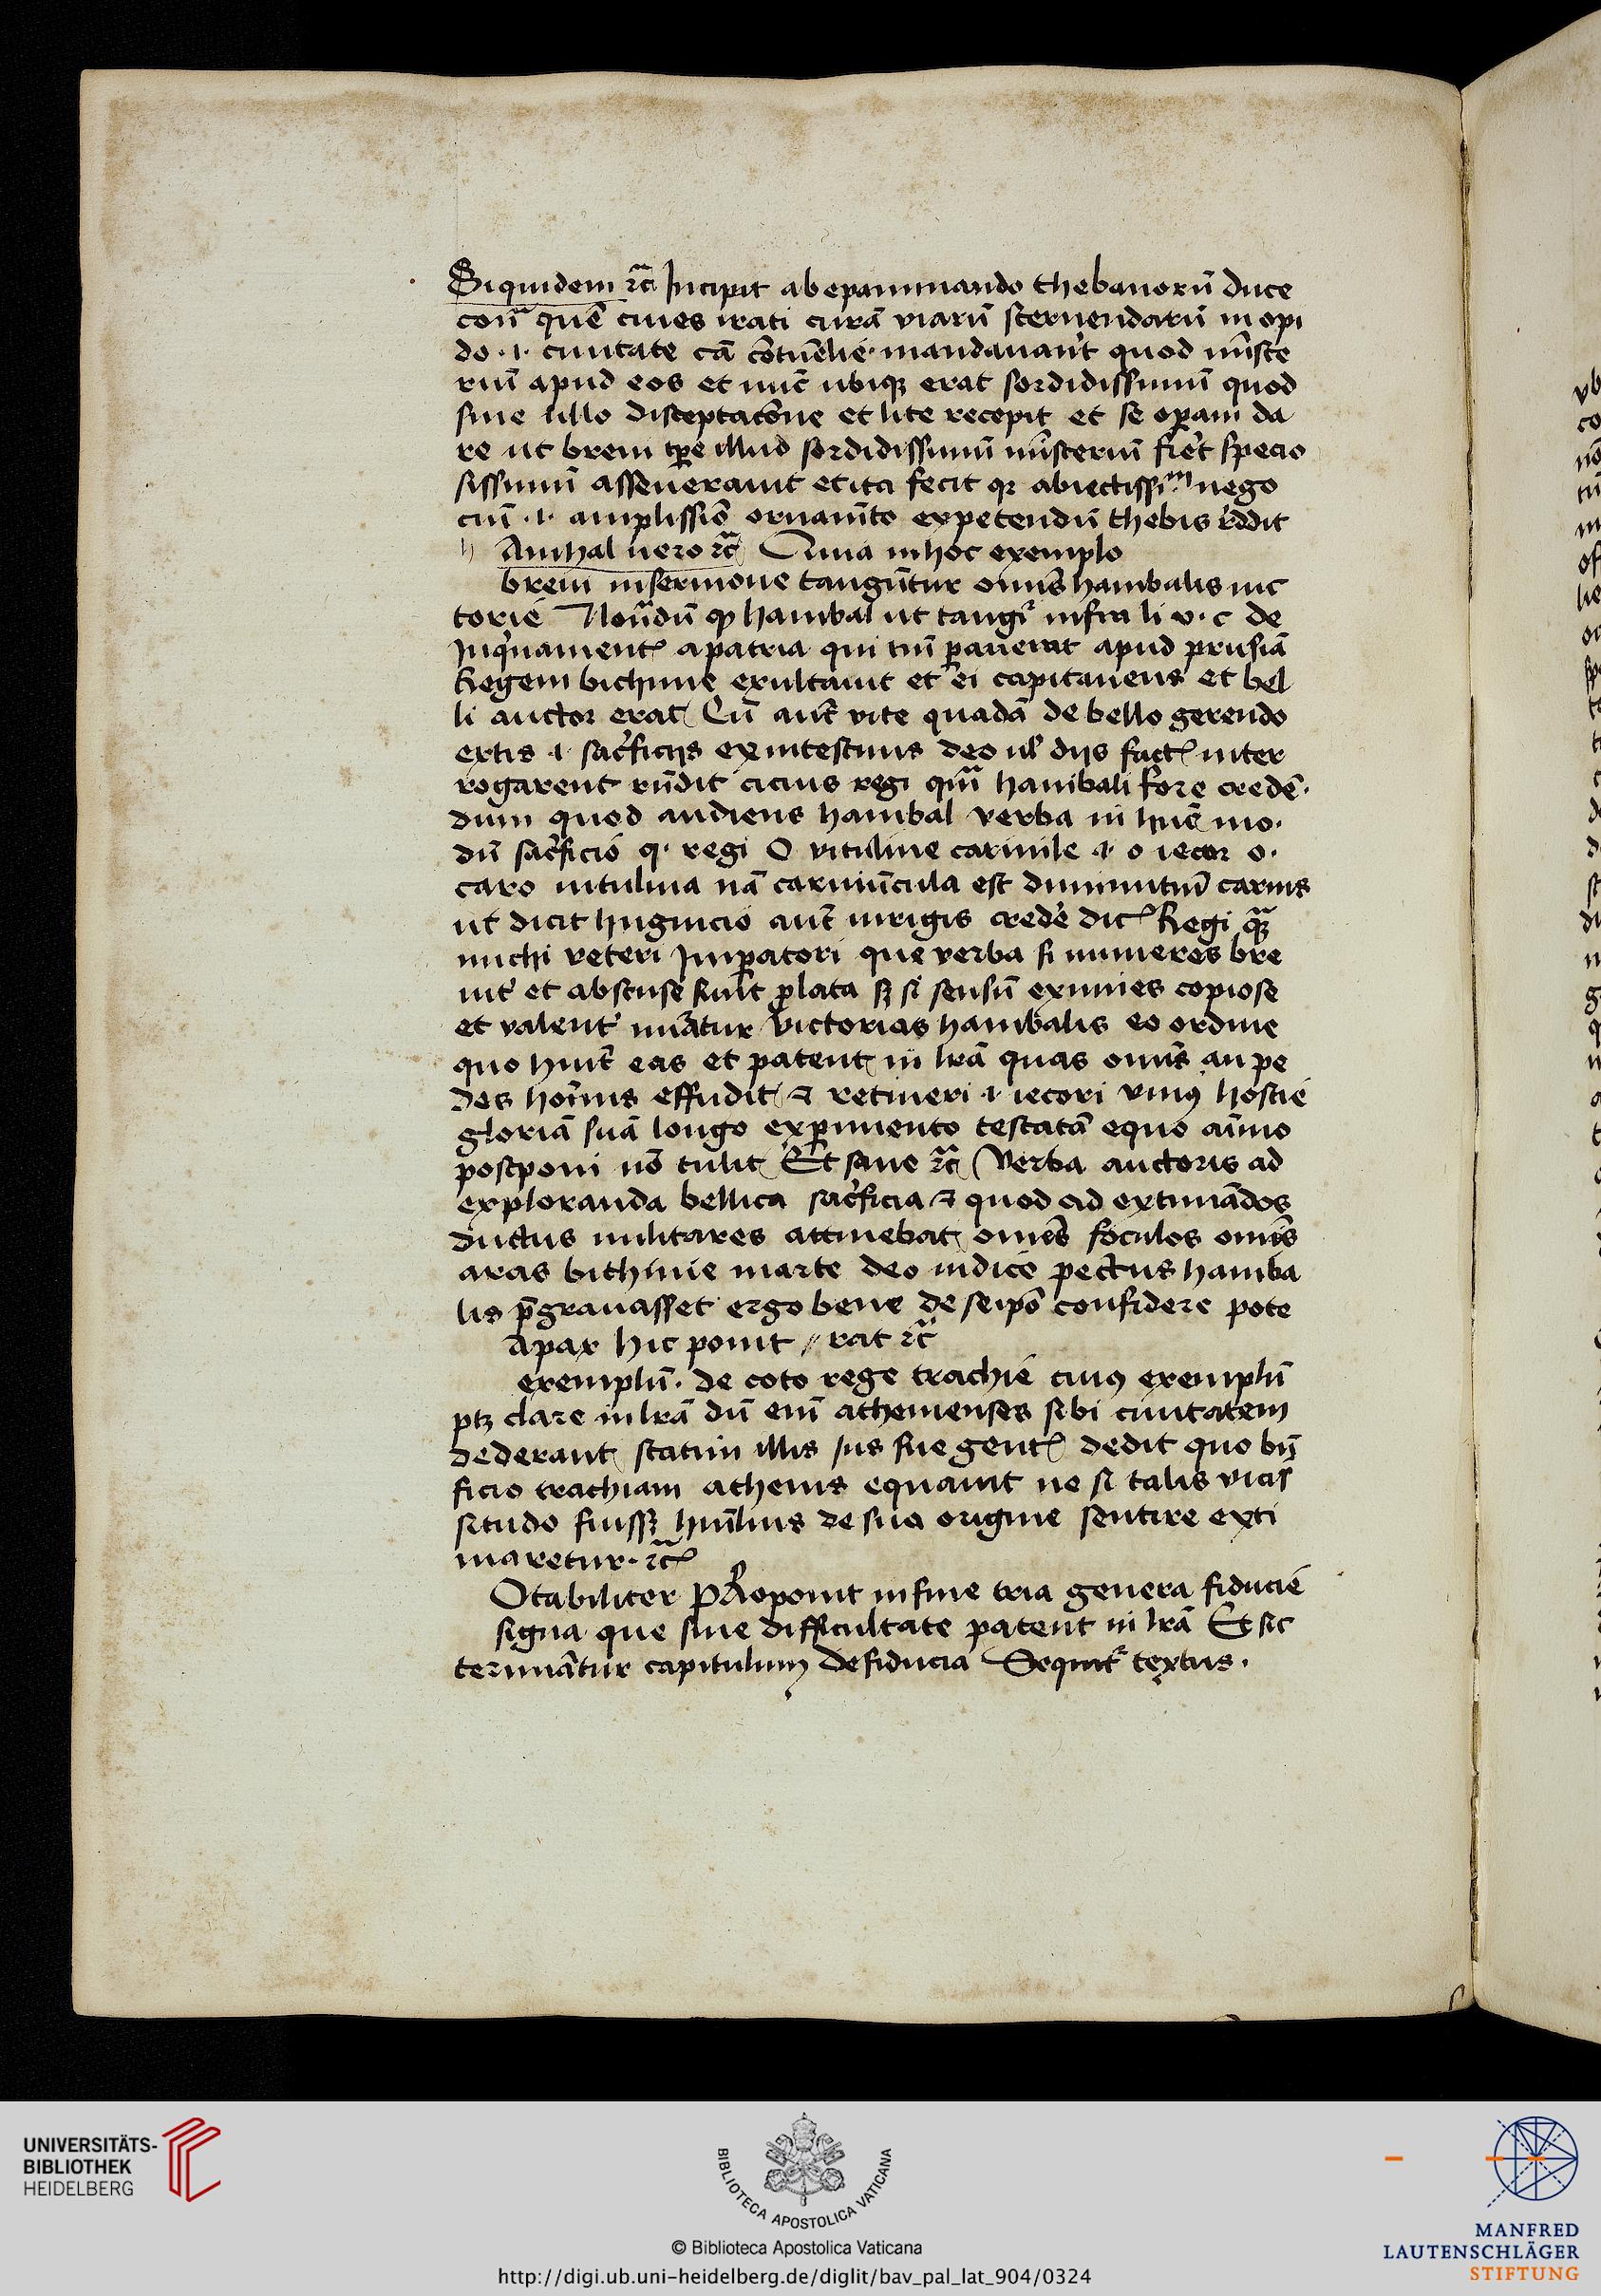 Siquidem ⁊c̃ Incipit ab epaminnando thebanorũ duce
conª quẽ ciues irati curã viarũ sternendarũ in opi
do ·i· ciuitate cã cõtuẽlie mandauãt quod mĩste
riũ apud eos et nũc ubiqꝫ erat sordidissimũ quod
sine ullo disceptacõne et lite recepit et se oꝑam da
re ut breui tꝑe illud sordidissimũ mĩsteriũ fiet specio
sissimũ asseuerauit et ita fecit qꝛ abiectissiᵐ nego
ciũ ·i· amplissiõ ornamẽto expetendũ thebis rͤddit
h Anibal uero ⁊c̃ Quia in hoc exemplo
breui in sermone tangũtur om̃s hanibalis uic
torie Notªdũ ꝙ hanibal ut tangiͬ infra li v· c de
a patria qui tũ ꝑauerat apud prusiã
Regem bithinie exultauit et ei capitaneus et bel
li auctor erat Cũ aut̃ vite quadã de bello gerendo
extis ·i· sac̓ficijs ex intestinis deo ul̓ dijs fact inter
rogarent rñdit cicius regi qᷓ hanibali fore credẽ·
dum quod audiens hanibal verba in hũc mo·
dũ sac̓ficio q· regi O vituline carnicule ·i· o iecur o·
caro uitulina nã carniũcula est diminutiũ carnis
ut dicit hugwicio aut̃ mrigis crede dic Regi qᷓ
michi veteri Imꝑatori que verba si numeres bre
uit̓ et abscuse sũt ꝓlata sꝫ si sensũ eximies copiose
et valent̓ mĩatur victorias hanibalis eo ordine
quo hĩut eas et patent in lrã quas om̃s an pe
des hoĩnis effudit ⁊ retineri ·i· iecori vniꝰ hostie
gloriã suã longo exꝑimento testatã equo aĩmo
postponi nõ tulit Et sane ⁊c̃ Verba auctoris ad
exploranda bellica sac̓ficia ⁊ quod ad extimãdos
ductus militares attinebat omẽs foculos om̃s
aras bithinie marte deo iudice pectus haniba
lis p̃grauasset ergo bene de seip̃o confidere pote
Apax hic ponit // rat ⁊c̃
exemplũ· de coto rege trachie cuiꝰ exemplũ
ptꝫ clare in lrã dũ enĩ athenienses sibi ciuitatem
dederant statim illis ius sue gent dedit quo bñ
ficio trachiam athenis equauit ne si talis vicis
situdo fuissꝫ hũilius de sua origine sentire exti
maretur· ⁊c̃
Otabiliter PRoponit in fine tria genera fiducie
signa que sine difficultate patent in lrã Et sic
terminãtur capitulum de fiducia Sequitͬ textus·
UNIVERSITÄTS-
BIBLIOTHEK
HEIDELBERG
BIBLIOTECA APOSTOLICA VATICANA
© Biblioteca Apostolica Vaticana
http://digi.ub.uni-heidelberg.de/diglit/bav_pal_lat_904/0324
MANFRED
LAUTENSCHLÄGER
STIFTUNG